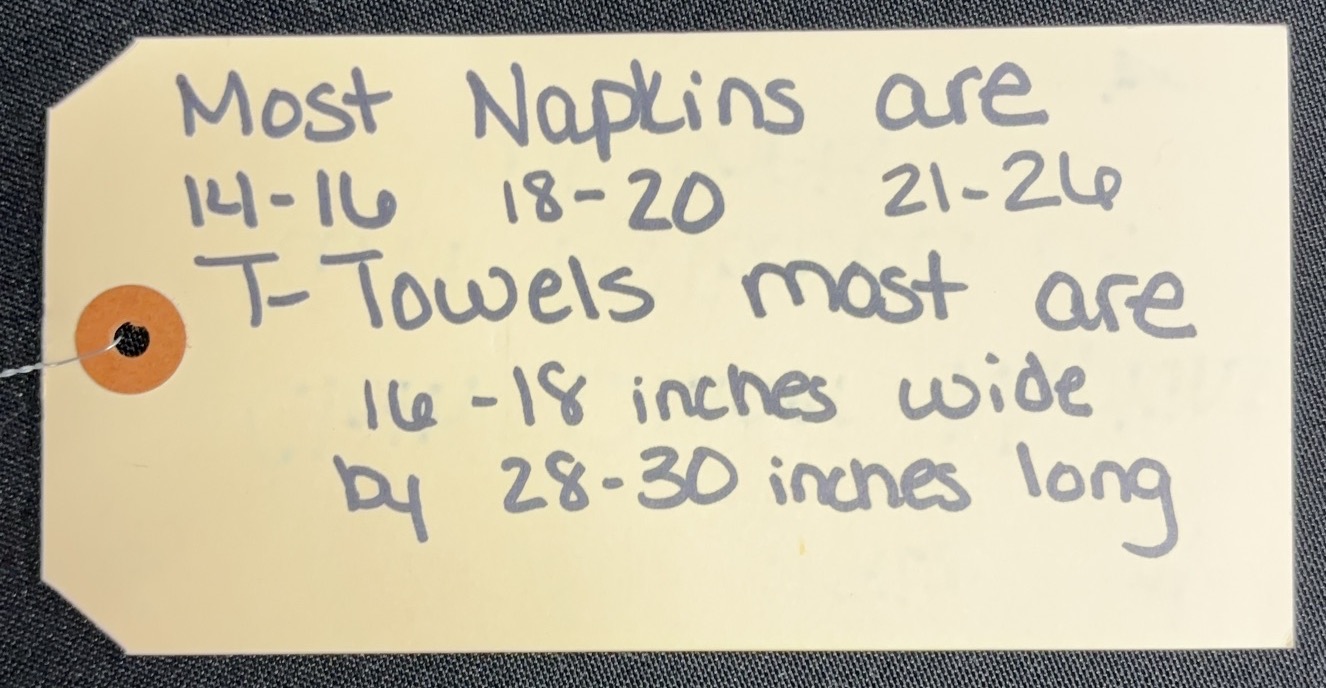 Most Napkins are
14-16 18-20 21-26
T-Towels most are
16-18 inches wide
by 28-30 inches long